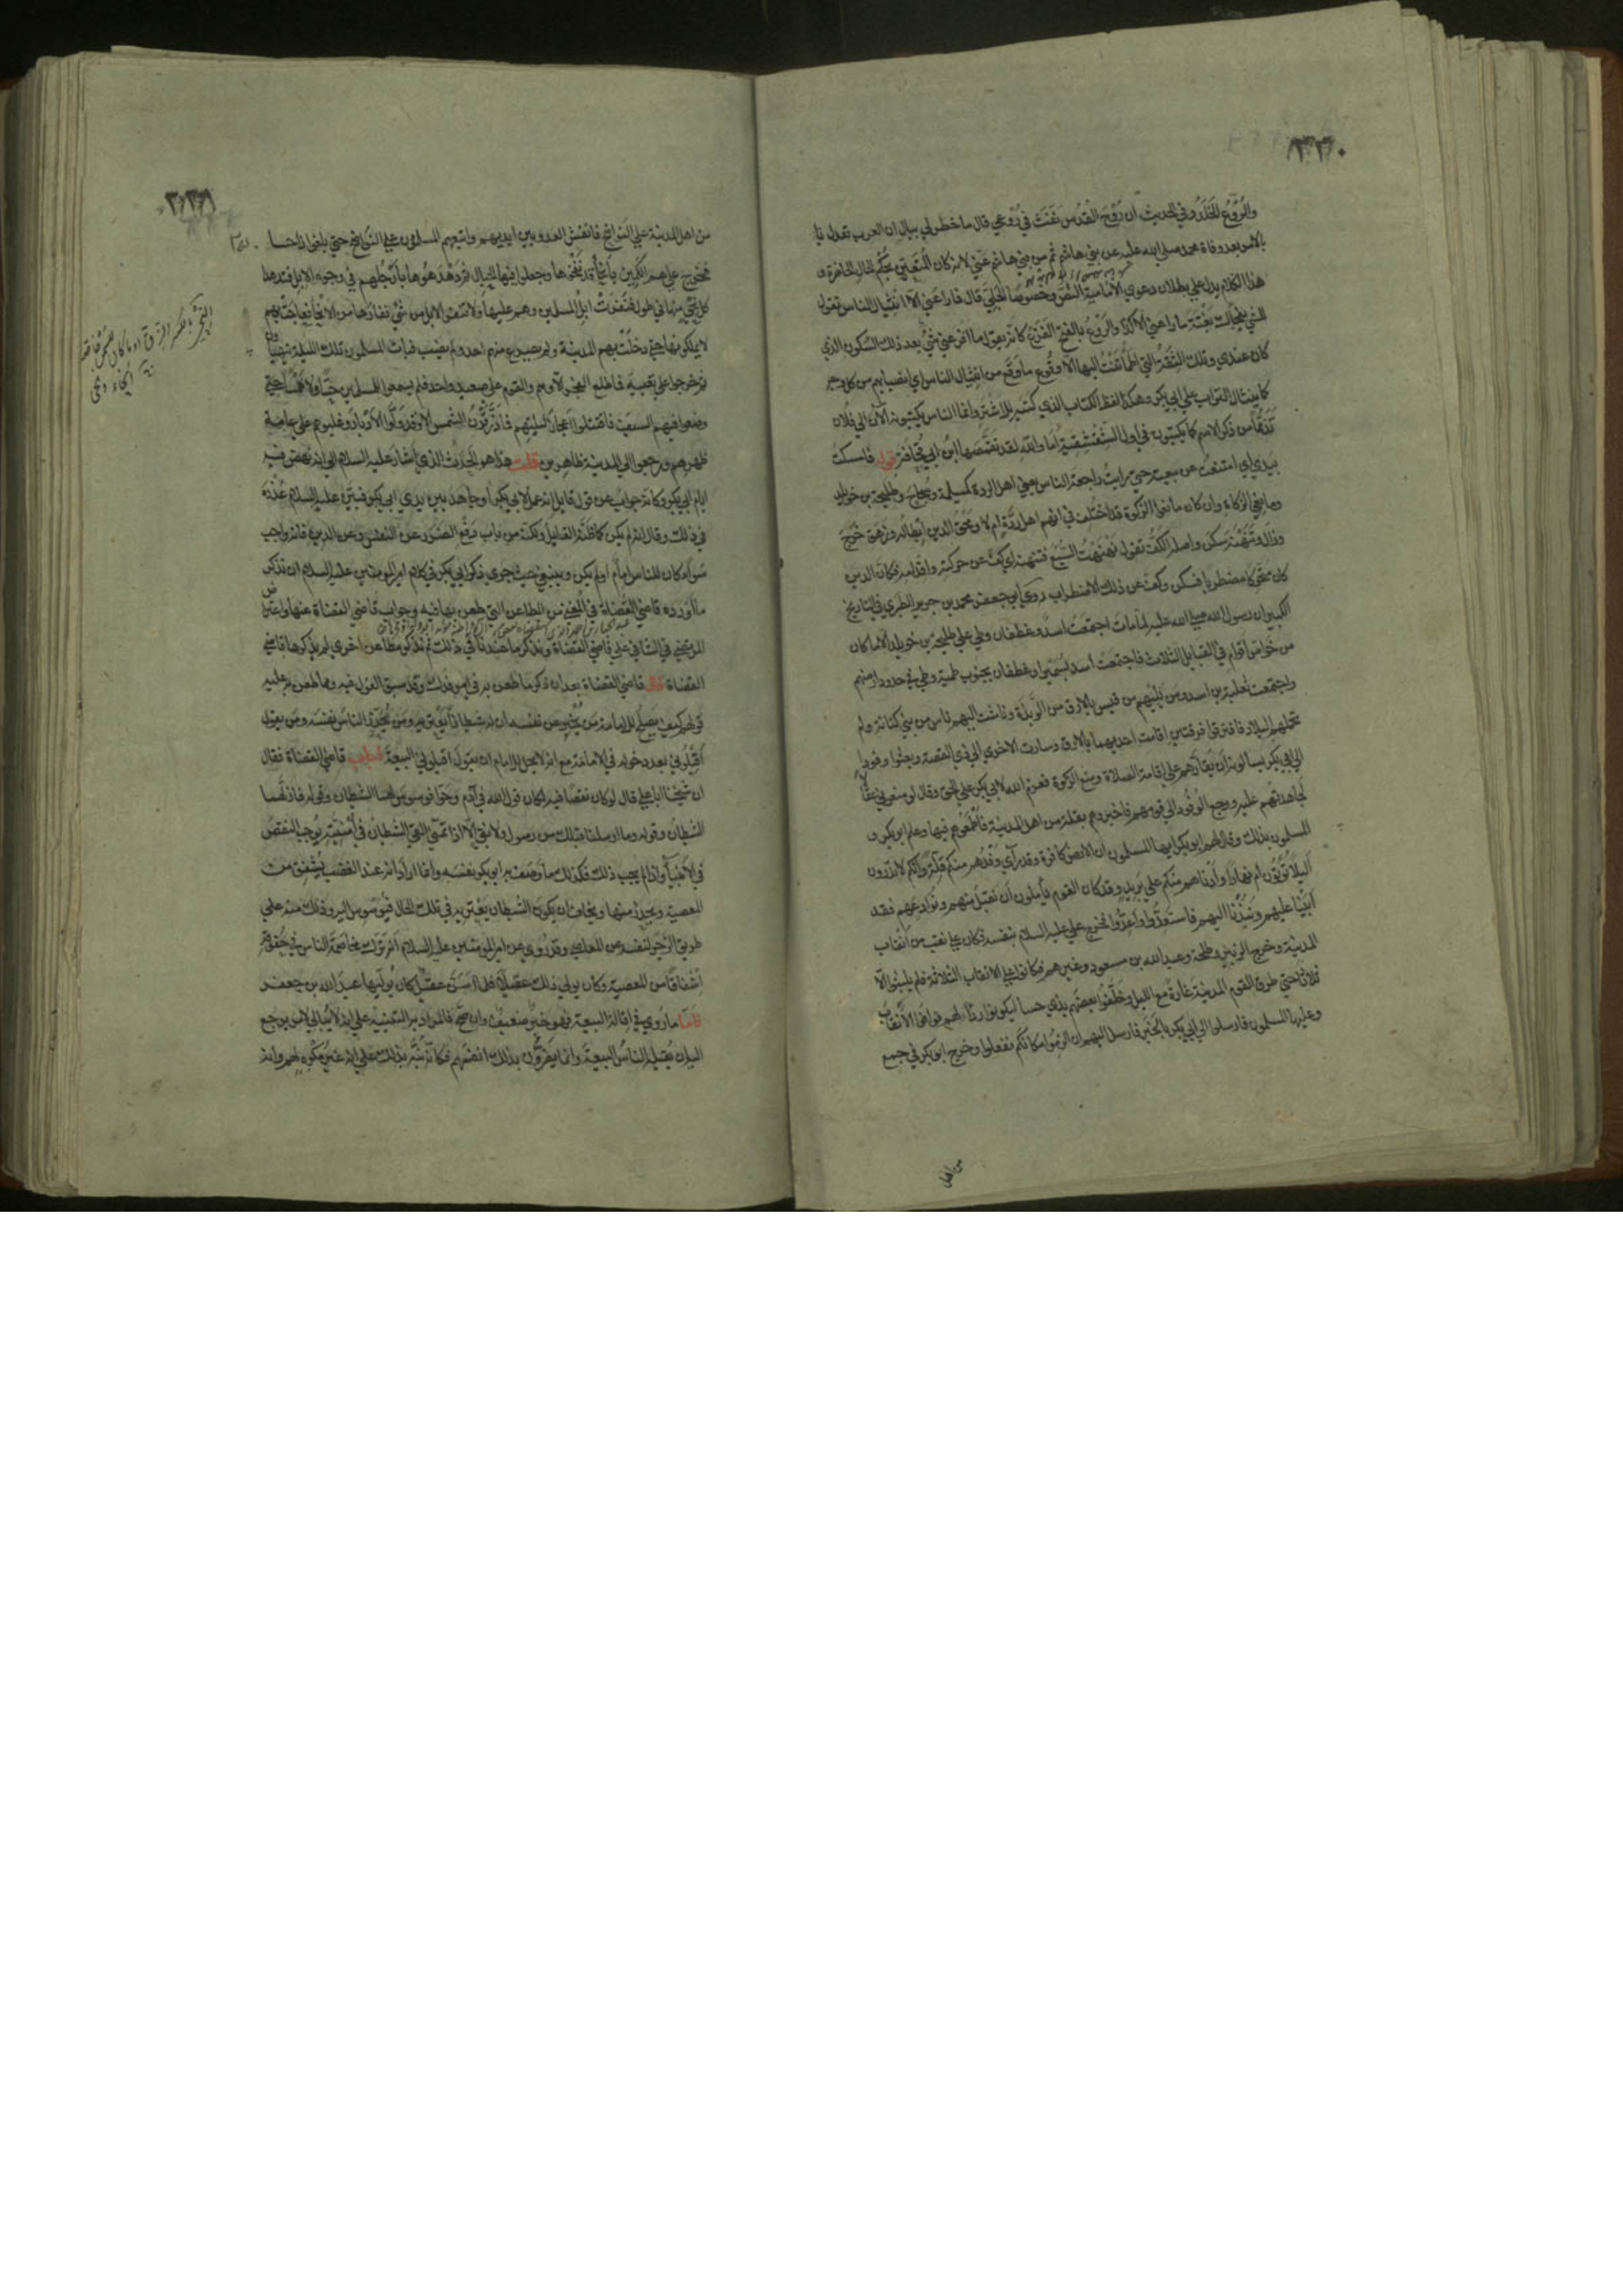 ٣٣٠
والرُّوْعُ الخَلَدُ وفي الحديث ان رُوْحَ القُدُس نَفَثَ في رُوْعي قال ما خطر لي ببال ان العرب تعدل با
بالامر بعد وفاة محمد صلى الله عليه عن بني هاشم ثم من بني هاشم عني لانه كان المتعين بحكم الحال الحاضرة و
هذا الكلام يدل على بطلان دعوى الامامية النص وخصوصا الجلي قال فما راعني الا انثيال الناس تقول
للشي يفجأك بغتة ما راعني الا كذا والروع بالفتح الفزع كانه يقول ما افزعني شي بعد ذلك السكون الذي
كان عندي وتلك الثقة التي اطمأننت اليها الا وقوع ما وقع من انثيال الناس اي انصبابهم من كل وجه
كما ينثال التراب على ابي بكر وهكذا لفظ الكتاب الذي كتبه للاشتر وانما الناس يكتبونه الآن الى فلان
تذمما من ذكر الاسم كما يكتبون في اول الشقشقية اما والله لقد تقمصها ابن ابي قحافة قوله فامسكت
بيدي اي امتنعت عن بيعته حتى رايت راجعة الناس يعني اهل الردة كمسيلمة وسجاح وطليحة بن خويلد
ومانعي الزكاة وان كان مانعوا الزكوة قد اختلف في انهم اهل ردة ام لا ومحق الدين ابطاله وزهق خرج
وزال وتنهنه سكن واصله الكف تقول نهنهت السبع فتنهنه اي كف عن حركته واقدامه فكان الدين
كان متحركا مضطربا فسكن وكف عن ذلك الاضطراب روى ابو جعفر محمد بن جرير الطبري في التاريخ
الكبير ان رسول الله صلى الله عليه لما مات اجتمعت اسد وغطفان وطي على طليحة بن خويلد الا ما كان
من خواص اقوام في القبائل الثلاث فاجتمعت اسد بسميرا وغطفان بجنوب طيبة وطي في حدود ارضهم
واجتمعت ثعلبة بن اسد ومن يليهم من قيس بالابرق من الربذة وناشب اليهم ناس من بني كنانة ولم
تحملهم البلاد فافترقوا فرقتين اقامت احديهما بالابرق وسارت الاخرى الى ذي القصة وبعثوا وفودا
الى ابي بكر يسألونه ان يقارهم على اقامة الصلاة ومنع الزكوة فعزم الله لابي بكر على الحق وقال لو منعوني عقالا
لجاهدتهم عليه ورجع الوفود الى قومهم فاخبروهم بقلة من اهل المدينة فاطمعوهم فيها وعلم ابو بكر و
المسلمون بذلك وقال لهم ابو بكر ايها المسلمون ان الارض كافرة وقد رأى وفدهم منكم قلة وانكم لا تدرون
أليلا تؤتون ام نهارا وأدناهم منكم على بريد وقد كان القوم يأملون ان نقبل منهم ونوادعهم فقد
أبينا عليهم ونبذنا اليهم فاستعدوا وأعدوا فخرج علي عليه السلام بنفسه فكان على نقب من انقاب
المدينة وخرج الزبير وطلحة وعبد الله بن مسعود وغيرهم فكانوا على الانقاب الثلاثة فلم يلبثوا الا
ثلاثا حتى طرق القوم المدينة غارة مع الليل وخلفوا بعضهم بذي حسا ليكونوا ردءا لهم فوافوا الانقاب
وعليها المسلمون فارسلوا الى ابي بكر بالخبر فارسل اليهم ان الزموا مكانكم ففعلوا وخرج ابو بكر في جمع
من اهل
٣٣١
من اهل المدينة على النواضح فانتشر العدو بين ايديهم واتبعهم المسلمون على النواضح حتى بلغوا ذا حسا
فخرج عليهم الكمين بأنحاء قد نفخوها وجعلوا فيها الحبال ثم دهدهوها بأرجلهم في وجوه الابل فتدهده
كل نحي منها في طوله فنفرت ابل المسلمين وهم عليها ولا تنفر الابل من شي نفارها من الانحاء فعاجت بهم
لا يملكونها حتى دخلت بهم المدينة ولم يصرع منهم احد ولم يصب فبات المسلمون تلك الليلة يتهيأون
ثم خرجوا على تعبية فما طلع الفجر الا وهم والقوم على صعيد واحد فلم يسمعوا للمسلمين حسا ولا همسا حتى
وضعوا فيهم السيف فاقتتلوا اعجاز ليلتهم فما ذر قرن الشمس الا وقد ولوا الادبار وغلبوهم على عامة
ظهرهم ورجعوا الى المدينة ظاهرين قلت هذا هو الحديث الذي اشار عليه السلام الى انه نهض فيه
ايام ابي بكر وكانه جواب عن قول قائل انه عمل لابي بكر وجاهد بين يدي ابي بكر فبين عليه السلام عذره
في ذلك وقال انه لم يكن كما ظنه القائل ولكنه من باب دفع الضرر عن النفس وعن الدين فانه واجب
سواء كان للناس امام او لم يكن وينبغي حيث جرى ذكر ابي بكر في كلام امير المؤمنين عليه السلام ان نذكر
ما اورده قاضي القضاة في المغني من المطاعن التي طعن بها فيه وجواب قاضي القضاة عنها واعتراض
المرتضى في الشافي على قاضي القضاة ونذكر ما عندنا في ذلك ثم نذكر مطاعن اخرى لم يذكرها قاضي
القضاة قال قاضي القضاة بعد ان ذكر ما طعن به في امر فدك وقد سبق القول فيه ومما طعن به عليه
قولهم كيف يصلح للامامة من يخبر عن نفسه ان له شيطانا يعتريه ومن يحذر الناس نفسه ومن يقول
أقيلوني بعد دخوله في الامامة مع انه لا يحل للامام ان يقول اقيلوني البيعة اجاب قاضي القضاة فقال
ان شيخنا ابا علي قال لو كان نقصا فيه لكان قول الله في آدم وحوا فوسوس لهما الشيطان وقوله فازلهما
الشيطان وقوله وما ارسلنا قبلك من رسول ولا نبي الا اذا تمنى القى الشيطان في أمنيته يوجب النقص
في الانبياء واذا لم يجب ذلك فكذلك ما وصف به ابو بكر نفسه وانما اراد انه عند الغضب يشفق من
المعصية ويحذر منها ويخاف ان يكون الشيطان يعتريه في تلك الحال فيوسوس اليه وذلك منه على
طريق الزجر لنفسه عن المعاصي وقد روي عن امير المؤمنين عليه السلام انه ترك مخاصمة الناس في حقوقه
اشفاقا من المعصية وكان يولي ذلك عقيلا فلما اسن عقيل كان يوليها عبد الله بن جعفر
فاما ما روي في اقالة البيعة فهو خبر ضعيف وان صح فالمراد به التنبيه على انه لا يبالي لامر يرجع
اليه ان يقيله الناس البيعة وانما يضرون بذلك انفسهم فكانه نبه بذلك على انه غير مكره لهم وانه